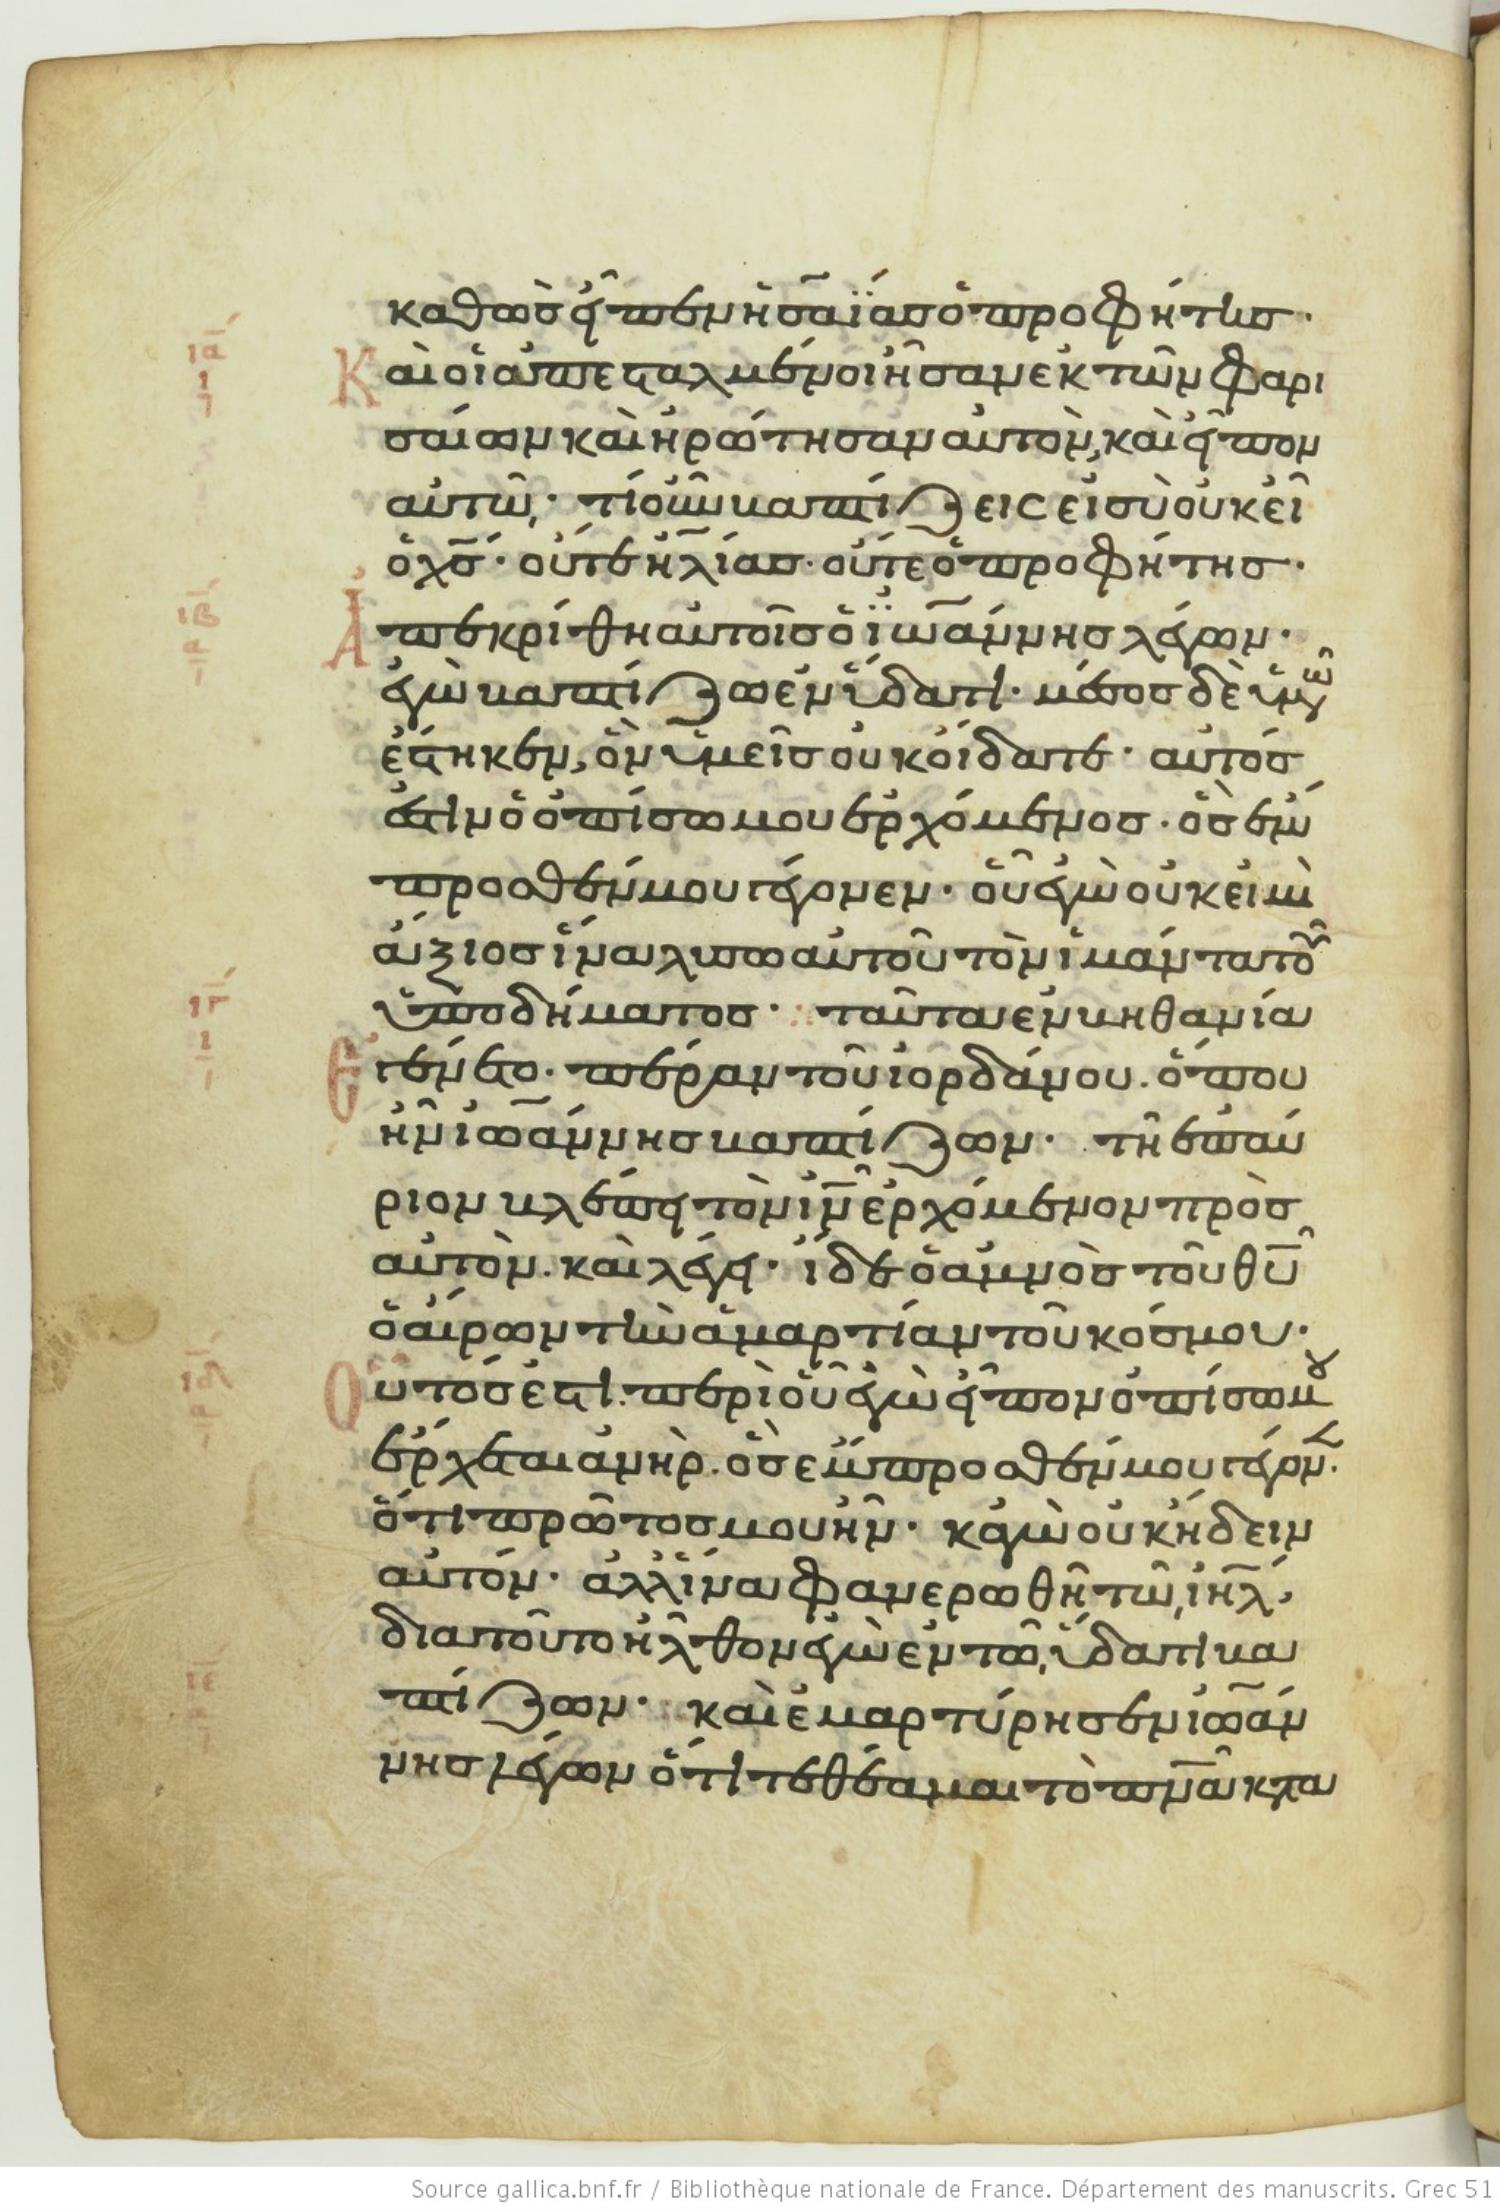 καθὼς εἶπεν ἡσαΐας ὁ προφήτης·
ια
Καὶ οἱ ἀπεσταλμένοι ἦσαν ἐκ τῶν φαρι
σαίων καὶ ἠρώτησαν αὐτὸν, καὶ εἶπον
αὐτῶ· τί οὖν βαπτίζεις εἰ σὺ οὐκ εἶ
ὁ χς· οὔτε ἠλίας· οὔτε ὁ προφήτης·
ιβ
Ἀπεκρίθη αὐτοῖς ὁ ϊωάννης λέγων·
ἐγὼ βαπτίζω ἐν ὕδατι· μέσος δὲ ὑμῶν
ἕστηκεν, ὃν ὑμεῖς οὐκ οἴδατε· αὐτός
ἐστιν ὁ ὀπίσω μου ἐρχόμενος· ὃς ἔμ
προσθέν μου γέγονεν· οὗ ἐγὼ οὐκ εἰμὶ
ἄξιος ἵνα λύσω αὐτοῦ τὸν ἱμάντα τοῦ
ιγ
ὑποδήματος· ταῦτα ἐν βηθανία
Ἐγένετο· πέραν τοῦ ἰορδάνου· ὅπου
ἦν ἰωάννης βαπτίζων· τῆ ἐπαύ
ριον βλέπει τὸν ιν ἐρχόμενον πρὸς
αὐτὸν· καὶ λέγει· ἴδε ὁ ἀμνὸς τοῦ θυ
ὁ αἴρων τὴν ἁμαρτίαν τοῦ κόσμου·
ιδ
Οὗτός ἐστι· περὶ οὗ ἐγὼ εἶπον ὀπίσω μου
ἔρχεται ἀνὴρ· ὃς ἔμπροσθέν μου γέγονεν·
ὅτι πρῶτός μου ἦν· κἀγὼ οὐκ ἤδειν
αὐτόν· ἀλλ' ἵνα φανερωθῆ τῶ ιηλ,
διατοῦτο ἦλθον ἐγὼ ἐν τῶ ὕδατι βα
ιε
πτίζων· καὶ ἐμαρτύρησεν ἰωάν
νης λέγων ὅτι τεθέαμαι τὸ πνα κατα
Source gallica.bnf.fr / Bibliothèque nationale de France. Département des manuscrits. Grec 51